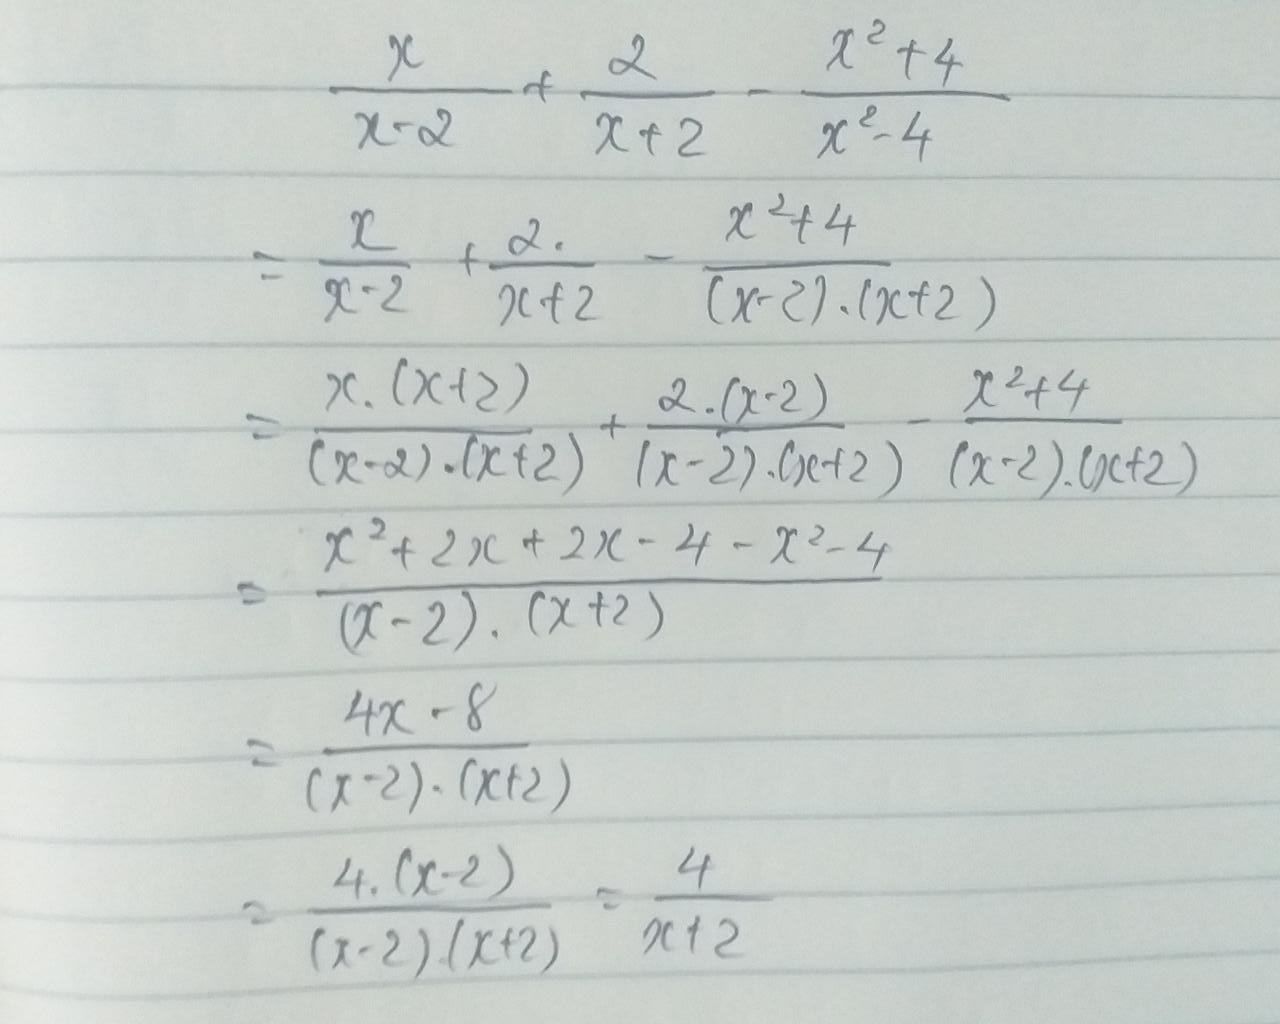 x/(x-2) + 2/(x+2) - (x²+4)/(x²-4)
= x/(x-2) + 2./(x+2) - (x²+4)/((x-2).(x+2))
= x.(x+2)/((x-2).(x+2)) + 2.(x-2)/((x-2).(x+2)) - (x²+4)/((x-2).(x+2))
= (x²+2x+2x-4-x²-4)/((x-2).(x+2))
= (4x-8)/((x-2).(x+2))
= 4.(x-2)/((x-2).(x+2)) = 4/(x+2)